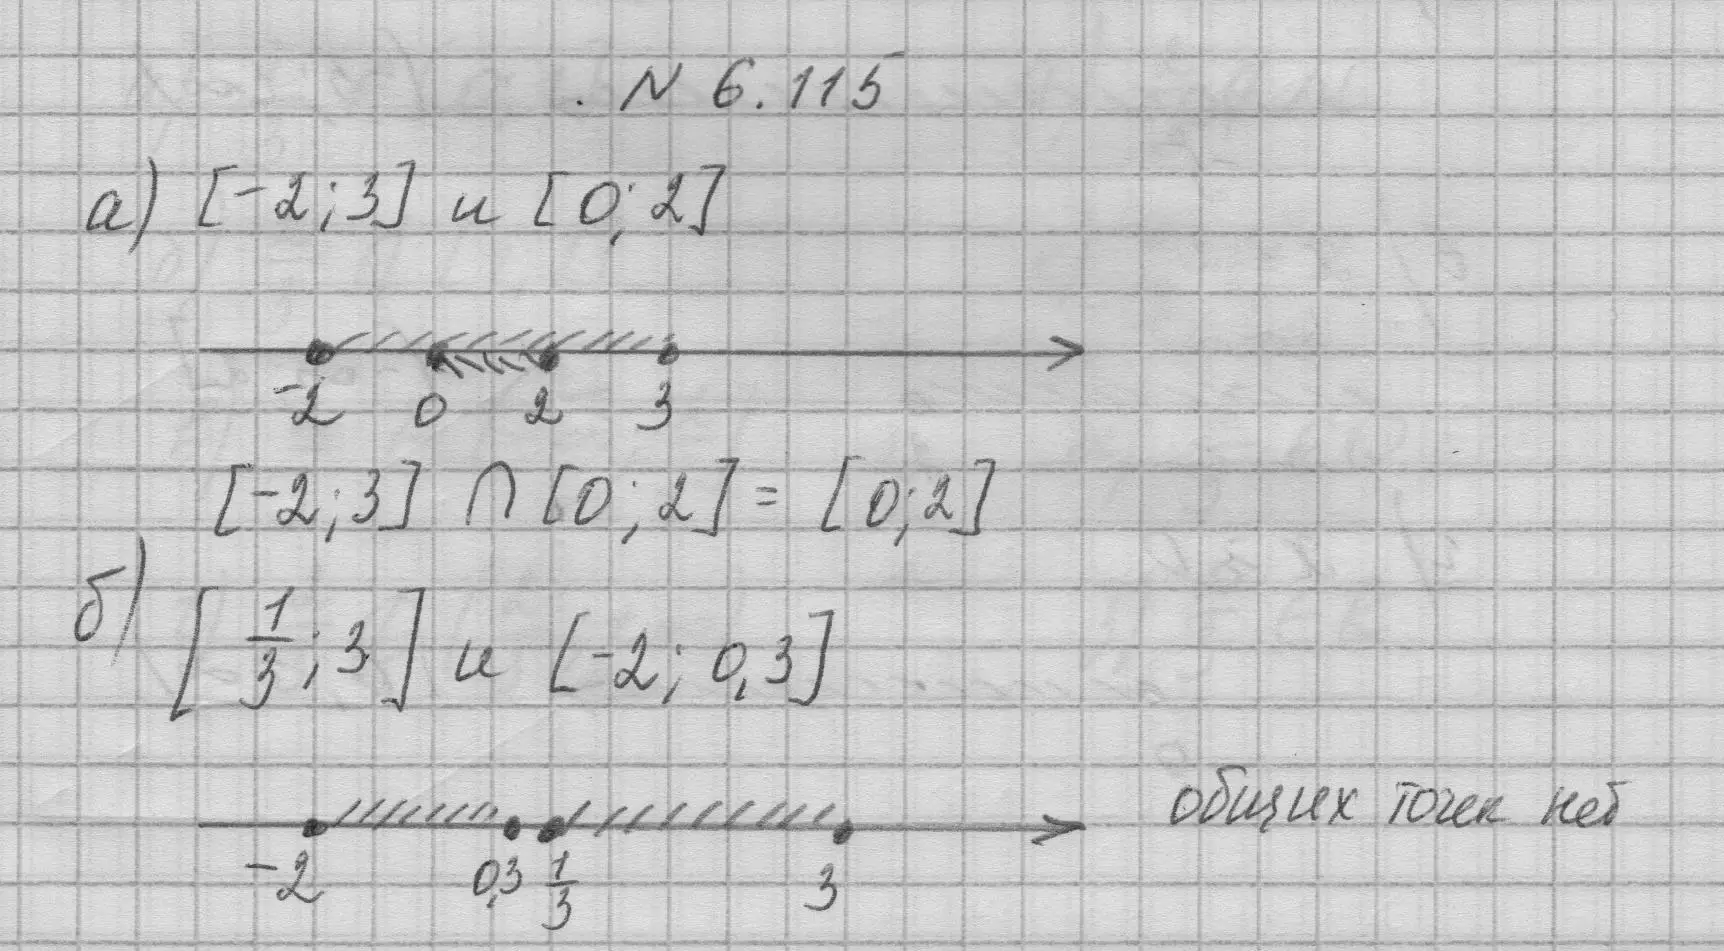 . N 6.115
а) [-2; 3] и [0; 2]
-2 0 2 3
[-2; 3] ∩ [0; 2] = [0; 2]
б) [1/3; 3] и [-2; 0,3]
общих точек нет
-2 0,3 1/3 3